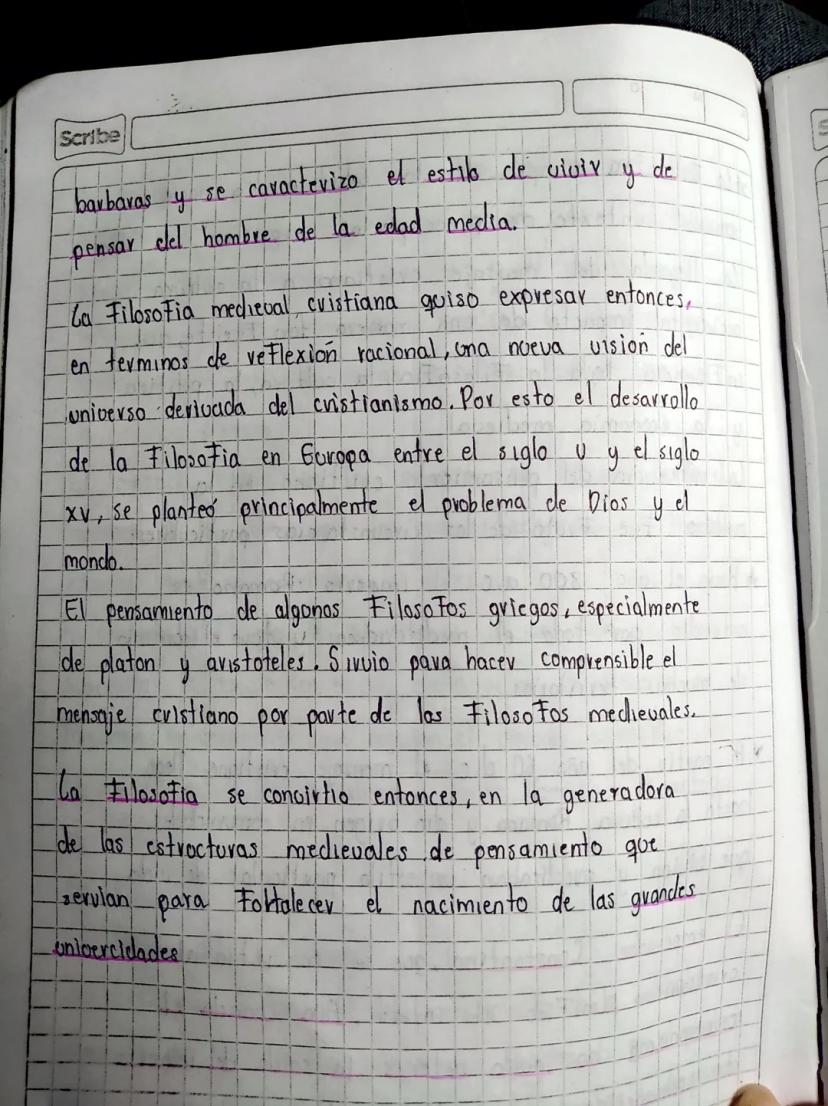 Scribe
barbaras y se caracterizo el estilo de vivir y de
pensar del hombre de la edad media.
La Filosofia medieval cristiana quiso expresar entonces,
en terminos de reflexión racional, una nueva visión del
universo derivada del cristianismo. Por esto el desarrollo
de la Filosofia en Europa entre el siglo V y el siglo
XV, se planteó principalmente el problema de Dios y el
mundo.
El pensamiento de algunos Filosofos griegos, especialmente
de platon y aristoteles. Sirvio para hacer comprensible el
mensaje cristiano por parte de los Filosofos medievales.
La Filosofia se convirtio entonces, en la generadora
de las estructuras medievales de pensamiento que
servian para Fortalecer el nacimiento de las grandes
univercidades